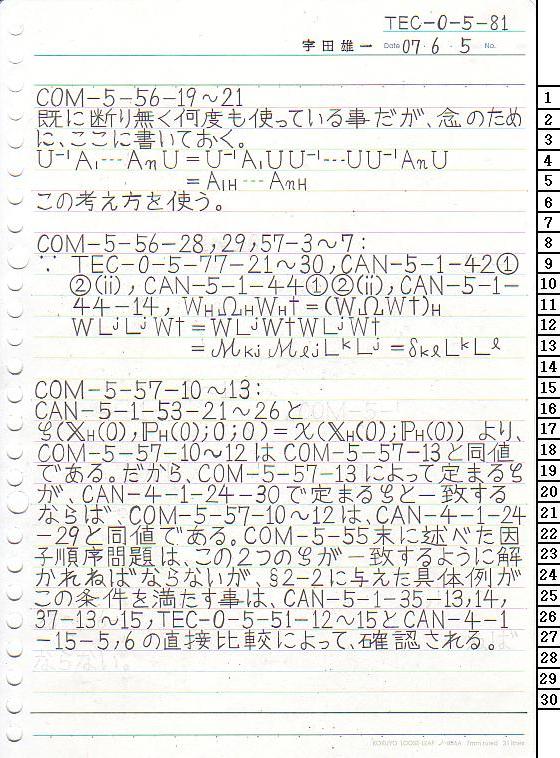 TEC-0-5-81
宇田雄一 Date 07・6・5 No.
COM-5-56-19～21
既に断り無く何度も使っている事だが、念のため
に、ここに書いておく。
U⁻¹A₁…AₙU = U⁻¹A₁UU⁻¹…UU⁻¹AₙU
= A₁H…AₙH
この考え方を使う。
COM-5-56-28,29,57-3～7:
∵ TEC-0-5-77-21～30,CAN-5-1-42①
②(ii),CAN-5-1-44①②(ii),CAN-5-1-
44-14, W_HΩ_HW_H†=(WΩW†)_H
WLʲLʲW†=WLʲW†WLʲW†
=𝓜ₖⱼ𝓜ₗⱼLᵏLˡ=δₖₗLᵏLˡ
COM-5-57-10～13:
CAN-5-1-53-21～26と
φ(𝕏_H(0),ℙ_H(0);0;0)=χ(𝕏_H(0);ℙ_H(0))より、
COM-5-57-10～12はCOM-5-57-13と同値
である。だから、COM-5-57-13によって定まるφ
が、CAN-4-1-24-30で定まるφと一致する
ならば、COM-5-57-10～12は、CAN-4-1-24
-29と同値である。COM-5-55末に述べた因
子順序問題は、この2つのφが一致するように解
かれねばならないが、§2-2に与えた具体例が
この条件を満たす事は、CAN-5-1-35-13,14,
37-13～15,TEC-0-5-51-12～15とCAN-4-1
-15-5,6の直接比較によって、確認される。
KOKUYO LOOSE-LEAF 7mm ruled 31 lines
1
2
3
4
5
6
7
8
9
10
11
12
13
14
15
16
17
18
19
20
21
22
23
24
25
26
27
28
29
30